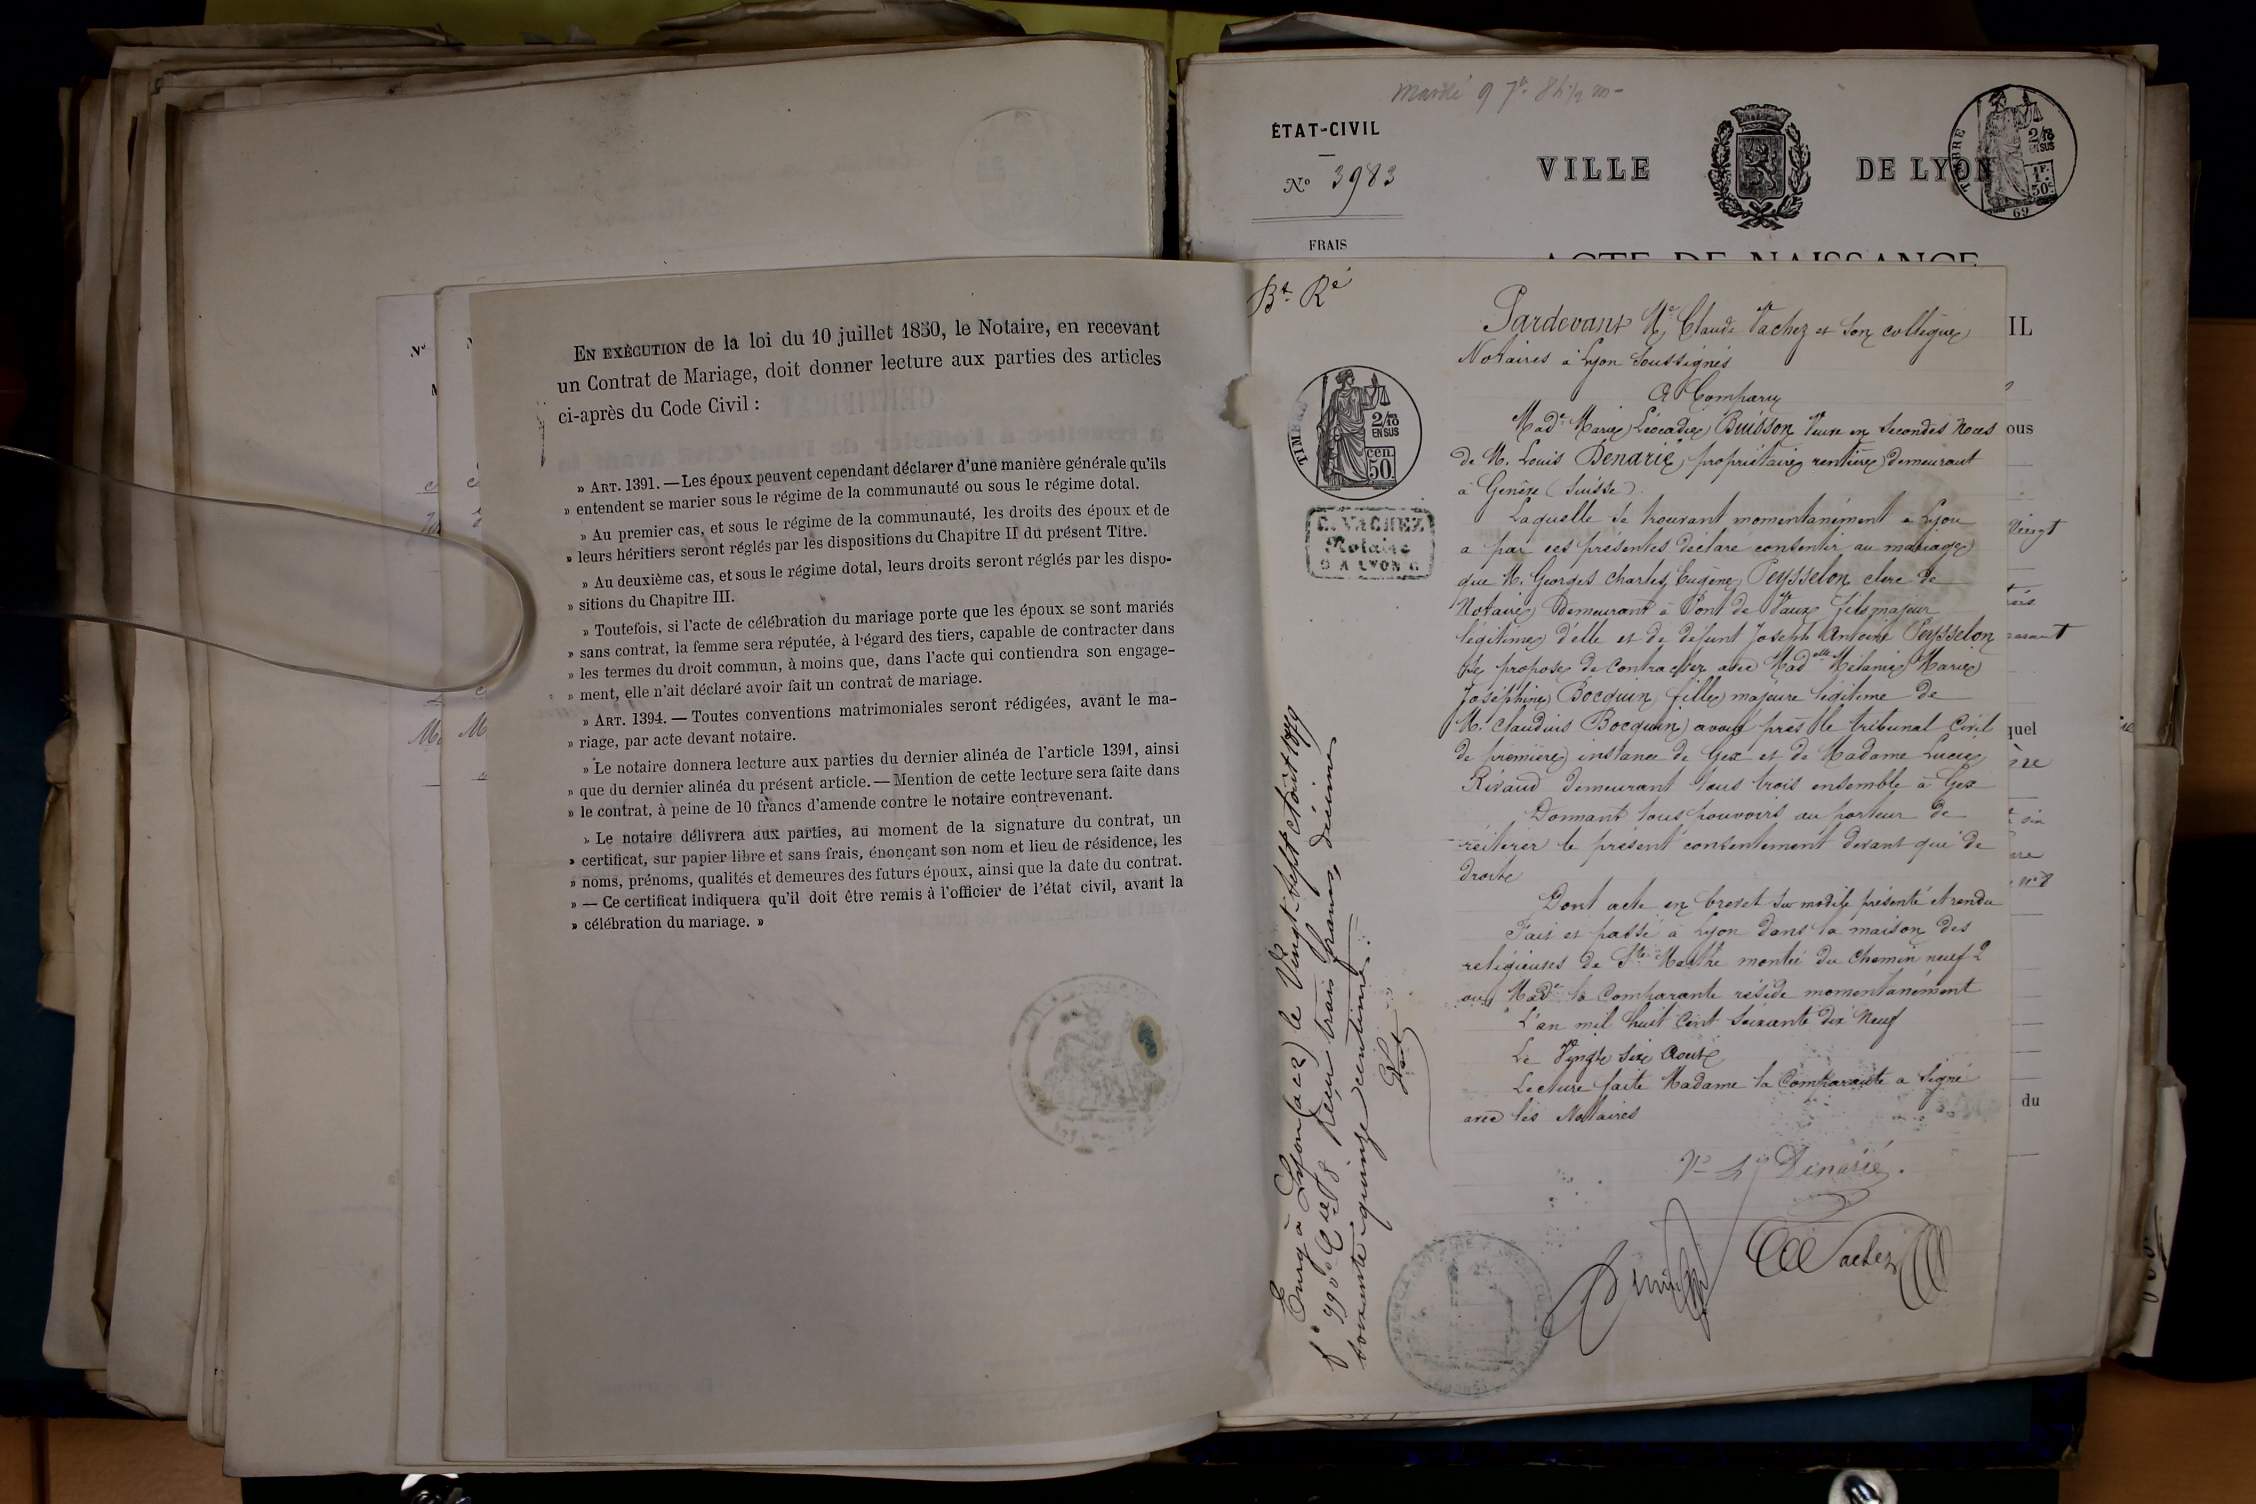 EN EXÉCUTION de la loi du 10 juillet 1850, le Notaire, en recevant
un Contrat de Mariage, doit donner lecture aux parties des articles
ci-après du Code Civil :
» ART. 1391. — Les époux peuvent cependant déclarer d'une manière générale qu'ils
» entendent se marier sous le régime de la communauté ou sous le régime dotal.
» Au premier cas, et sous le régime de la communauté, les droits des époux et de
» leurs héritiers seront réglés par les dispositions du Chapitre II du présent Titre.
» Au deuxième cas, et sous le régime dotal, leurs droits seront réglés par les dispo-
» sitions du Chapitre III.
» Toutefois, si l'acte de célébration du mariage porte que les époux se sont mariés
» sans contrat, la femme sera réputée, à l'égard des tiers, capable de contracter dans
» les termes du droit commun, à moins que, dans l'acte qui contiendra son engage-
» ment, elle n'ait déclaré avoir fait un contrat de mariage.
» ART. 1394. — Toutes conventions matrimoniales seront rédigées, avant le ma-
» riage, par acte devant notaire.
» Le notaire donnera lecture aux parties du dernier alinéa de l'article 1391, ainsi
» que du dernier alinéa du présent article. — Mention de cette lecture sera faite dans
» le contrat, à peine de 10 francs d'amende contre le notaire contrevenant.
» Le notaire délivrera aux parties, au moment de la signature du contrat, un
» certificat, sur papier libre et sans frais, énonçant son nom et lieu de résidence, les
» noms, prénoms, qualités et demeures des futurs époux, ainsi que la date du contrat.
» — Ce certificat indiquera qu'il doit être remis à l'officier de l'état civil, avant la
» célébration du mariage. »
Mardi 9 7re 8h 1/2 m
ÉTAT-CIVIL
No 3983
FRAIS
VILLE DE LYON
TIMBRE
2/10
EN SUS
1F.
50c
69
ACTE DE NAISSANCE
Bt Ré
TIMBRE
2/10
EN SUS
cen.
50
C. VACHEZ
Notaire
A LYON
Pardevant Me Claude Vachez et son collègue
Notaires à Lyon soussignés
A Comparu
Made Marie Léocadie Buisson Veuve en secondes noces
de M. Louis Dénarié, propriétaire rentière demeurant
à Genève (Suisse).
Laquelle se trouvant momentanément à Lyon
a par ces présentes déclaré consentir au mariage
que M. Georges Charles Eugène Peysselon clerc de
Notaire Demeurant à Pont de Vaux fils majeur
légitime d'elle et de défunt Joseph Antoine Peysselon
se propose de contracter avec Madelle Mélanie Marie
Joséphine Bocquin, fille majeure légitime de
M. Claudius Bocquin avoué près le tribunal Civil
de première instance de Gex et de Madame Lucie
Rivaud demeurant tous trois ensemble à Gex
Donnant tous pouvoirs au porteur de
réitérer le présent consentement devant qui de
droit
Dont acte en brevet sur modèle présenté et rendu
Fait et passé à Lyon dans la maison des
religieuses de Ste Marthe montée du Chemin neuf 2
où Made la Comparante réside momentanément
L'an mil huit Cent soixante dix neuf
Le Vingt six Août
Lecture faite Madame la Comparante a signé
avec les Notaires
Dénarié
Vachez
Enreg à Lyon (aca) le Vingt sept Août 1879
fo 99 vo Cse 8 Reçu trois francs, décimes
soixante quinze centimes.
IL
ous
Vingt
quel
du